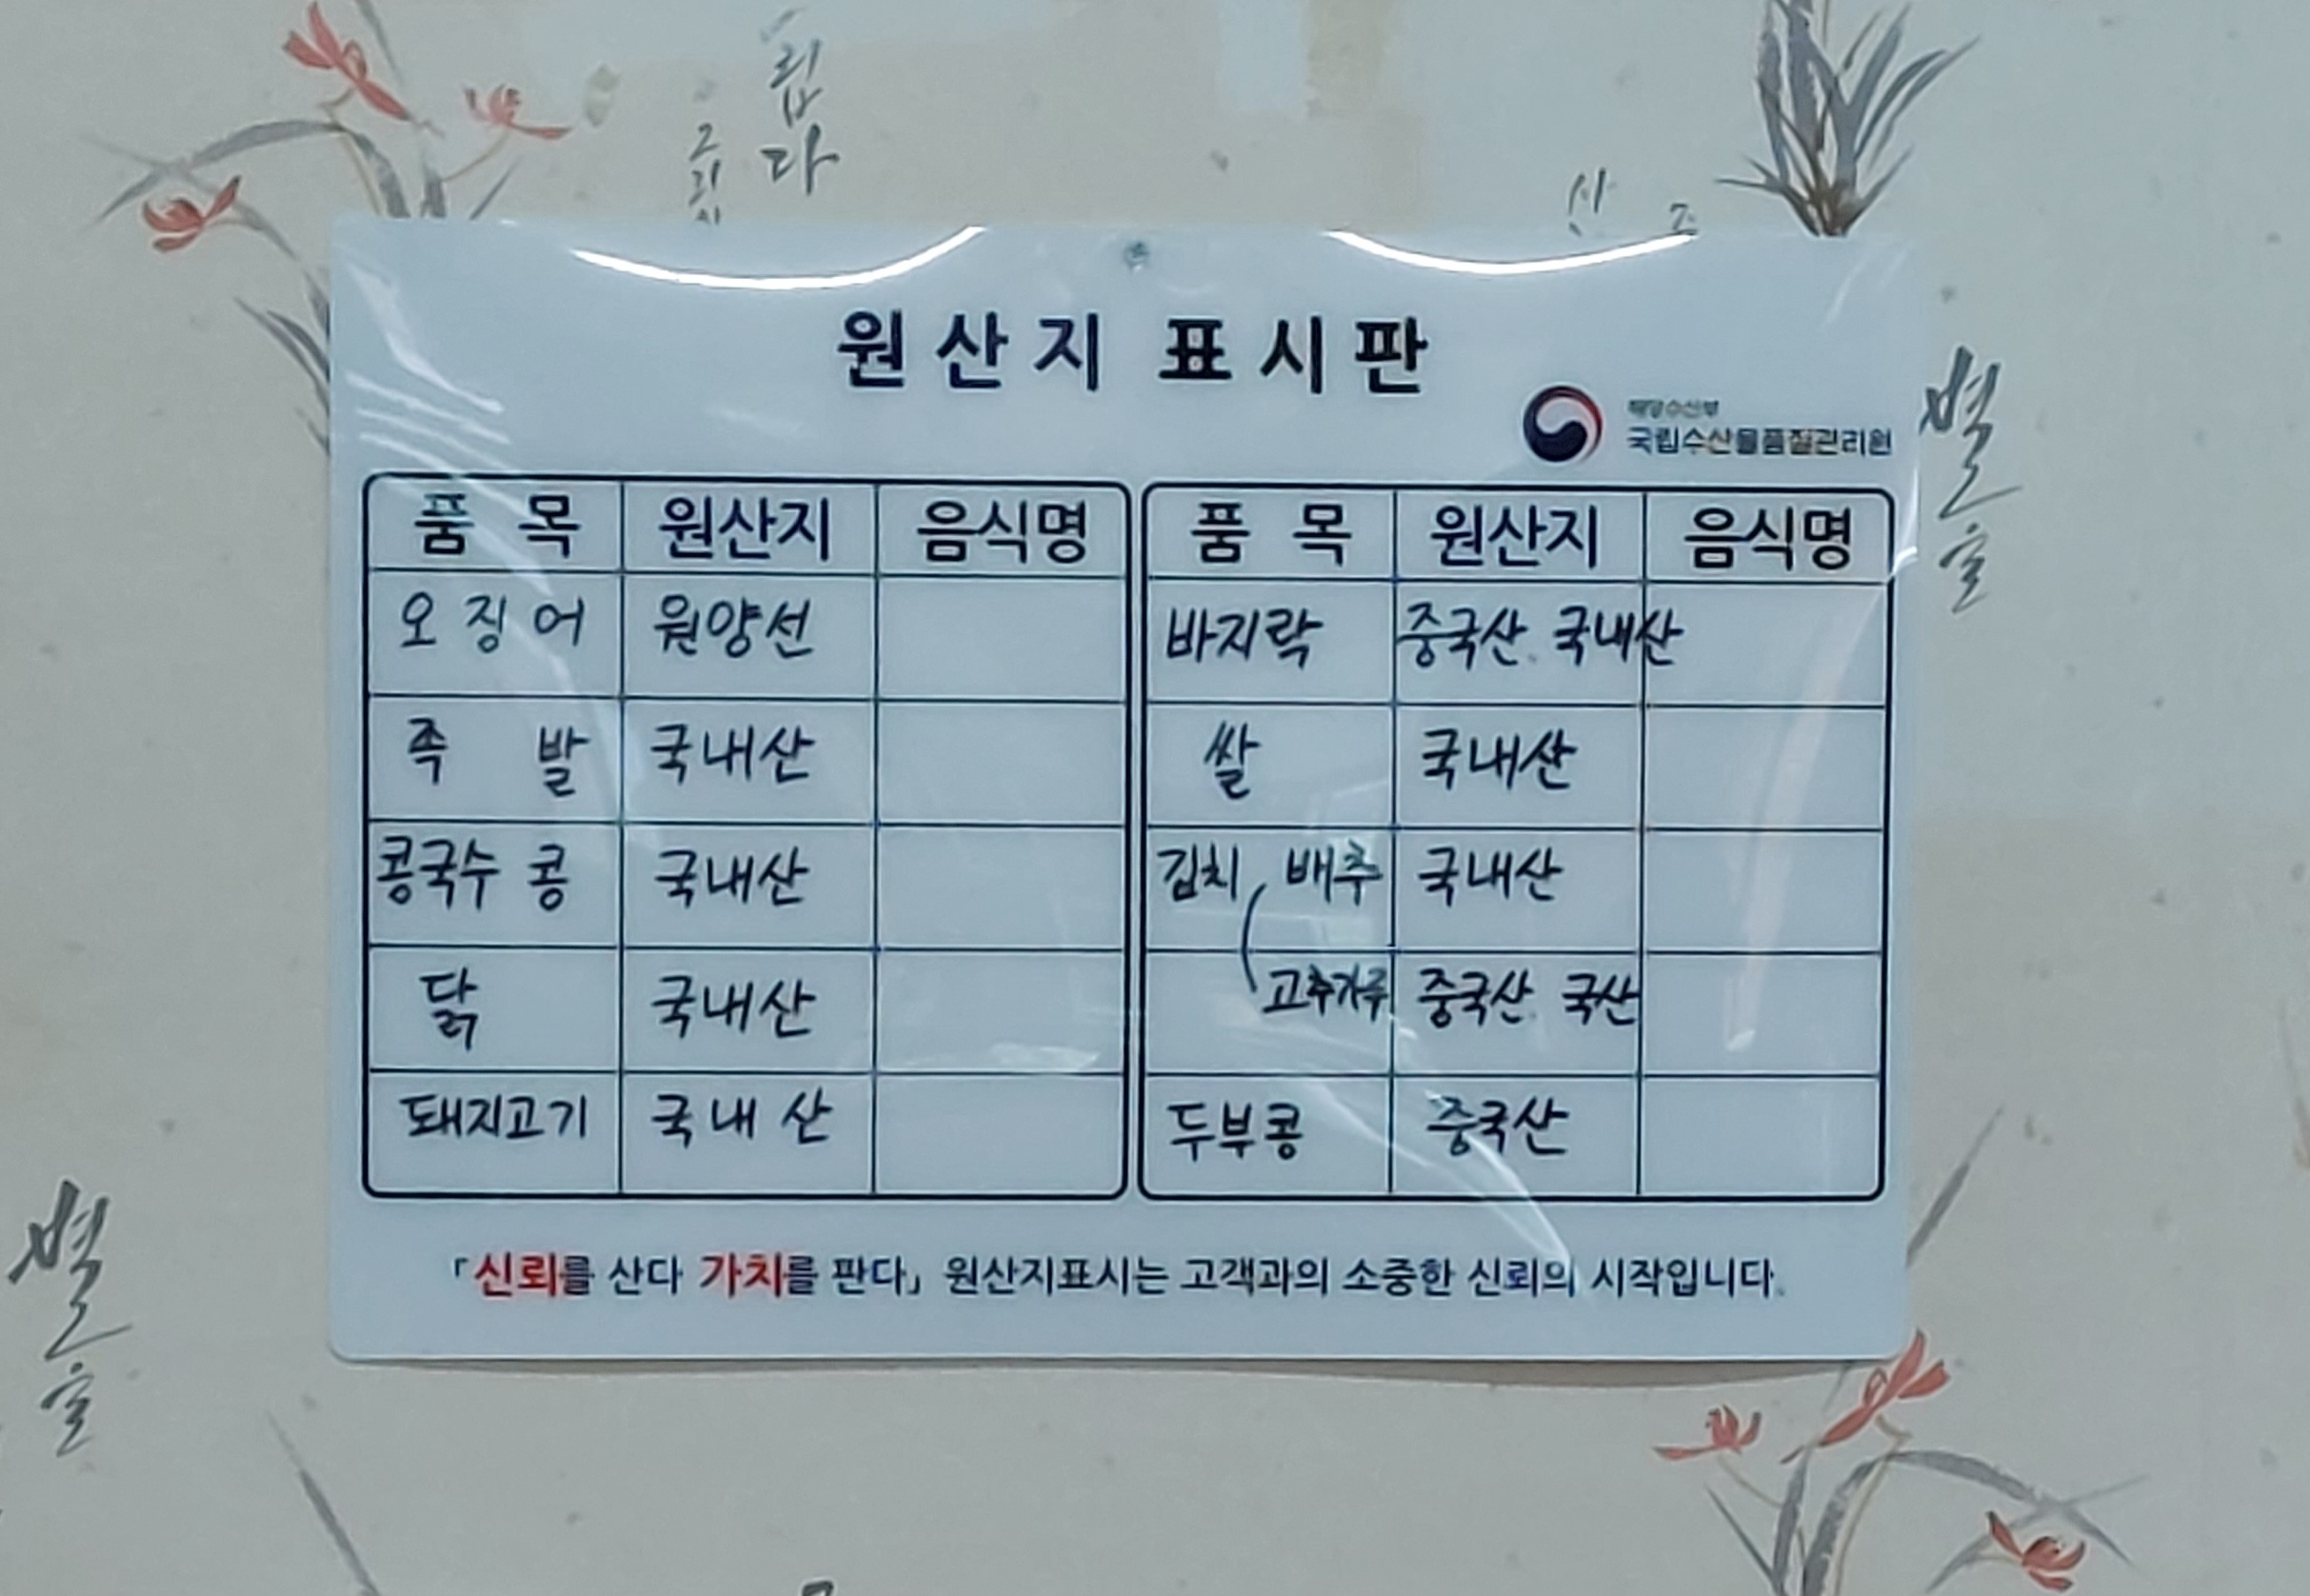 립
다
그리
산
원산지 표시판
해양수산부
국립수산물품질관리원
별
품 목 원산지 음식명 품 목 원산지 음식명
오징어 원양선 바지락 중국산. 국내산
족 발 국내산 쌀 국내산
콩국수 콩 국내산 김치 배추 국내산
닭 국내산 고추가루 중국산. 국산
돼지고기 국내산 두부콩 중국산
「신뢰를 산다 가치를 판다」 원산지표시는 고객과의 소중한 신뢰의 시작입니다.
별